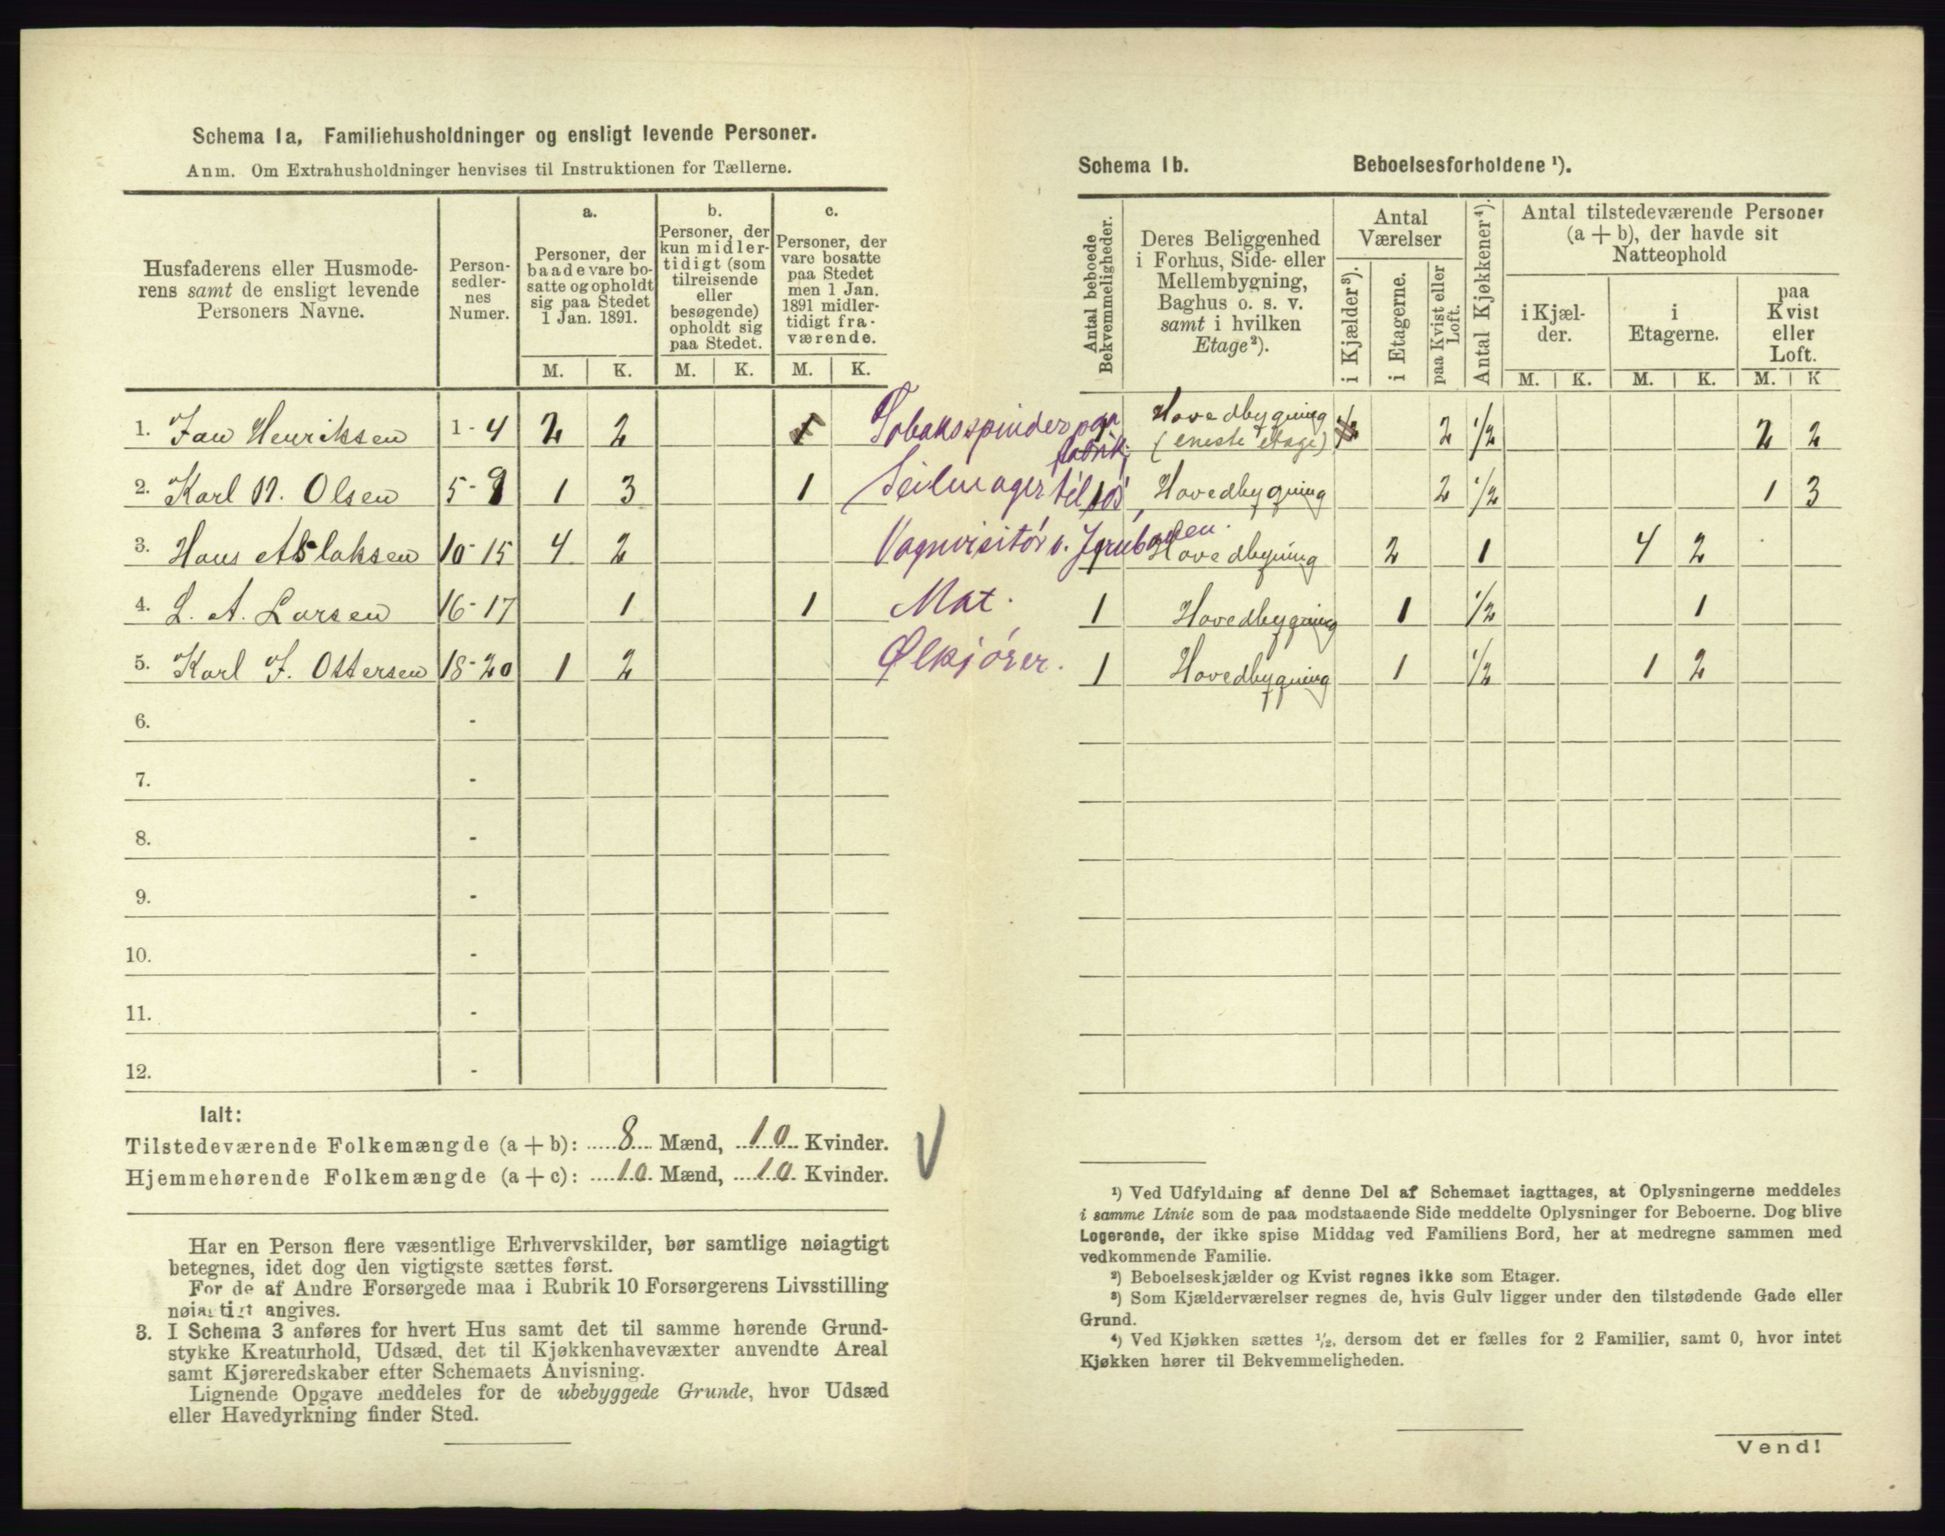 Schema 1a, Familiehusholdninger og ensligt levende Personer.
Anm. Om Extrahusholdninger henvises til Instruktionen for Tællerne.
Husfaderens eller Husmoderens samt de ensligt levende Personers Navne.
Personsedlernes Numer.
a. Personer, der baade vare bosatte og opholdt sig paa Stedet 1 Jan. 1891.
b. Personer, der kun midlertidigt (som tilreisende eller besøgende) opholdt sig paa Stedet.
c. Personer, der vare bosatte paa Stedet men 1 Jan. 1891 midlertidigt fraværende.
M. K. M. K. M. K.
1. Jan Henriksen 1-4 2 2 Tobaksspinder paa fabrik,
2. Karl N. Olsen 5-9 1 3 1 Seilmager til søs,
3. Hans Aslaksen 10-15 4 2 Vognvisitør v. Jernbanen.
4. L. A. Larsen 16-17 1 1 Mat.
5. Karl J. Ottersen 18-20 1 2 Ølkjører.
6. -
7. -
8. -
9. -
10. -
11. -
12. -
Ialt:
Tilstedeværende Folkemængde (a+b): 8 Mænd, 10 Kvinder.
Hjemmehørende Folkemængde (a+c): 10 Mænd, 10 Kvinder.
Har en Person flere væsentlige Erhvervskilder, bør samtlige nøiagtigt
betegnes, idet dog den vigtigste sættes først.
For de af Andre Forsørgede maa i Rubrik 10 Forsørgerens Livsstilling
nøiagtigt angives.
3. I Schema 3 anføres for hvert Hus samt det til samme hørende Grund-
stykke Kreaturhold, Udsæd, det til Kjøkkenhavevæxter anvendte Areal
samt Kjøreredskaber efter Schemaets Anvisning.
Lignende Opgave meddeles for de ubebyggede Grunde, hvor Udsæd
eller Havedyrkning finder Sted.
Schema 1b. Beboelsesforholdene ¹).
Antal beboede Bekvemmeligheder.
Deres Beliggenhed i Forhus, Side- eller Mellembygning, Baghus o. s. v. samt i hvilken Etage²).
Antal Værelser
i Kjælder³).
i Etagerne.
paa Kvist eller Loft.
Antal Kjøkkener⁴).
Antal tilstedeværende Personer (a+b), der havde sit Natteophold
i Kjælder.
i Etagerne.
paa Kvist eller Loft.
M. K. M. K. M. K
1 Hovedbygning (eneste etage) 2 1/2 2 2
1 Hovedbygning 2 1/2 1 3
1 Hovedbygning 2 1 4 2
1 Hovedbygning 1 1/2 1
1 Hovedbygning 1 1/2 1 2
¹) Ved Udfyldning af denne Del af Schemaet iagttages, at Oplysningerne meddeles
i samme Linie som de paa modstaaende Side meddelte Oplysninger for Beboerne. Dog blive
Logerende, der ikke spise Middag ved Familiens Bord, her at medregne sammen med
vedkommende Familie.
²) Beboelseskjælder og Kvist regnes ikke som Etager.
³) Som Kjælderværelser regnes de, hvis Gulv ligger under den tilstødende Gade eller
Grund.
⁴) Ved Kjøkken sættes ¹/₂, dersom det er fælles for 2 Familier, samt 0, hvor intet
Kjøkken hører til Bekvemmeligheden.
Vend!